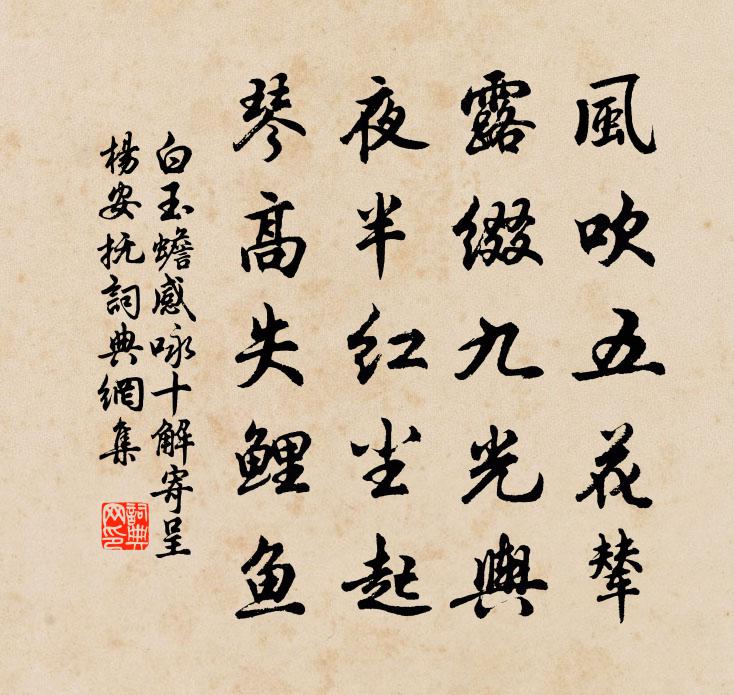 風吹五花輦
露綴九光輿
夜半红尘起
琴高失鯉鱼
白玉蟾感咏十解寄呈
楊安抚詞典網集
詞典
网印